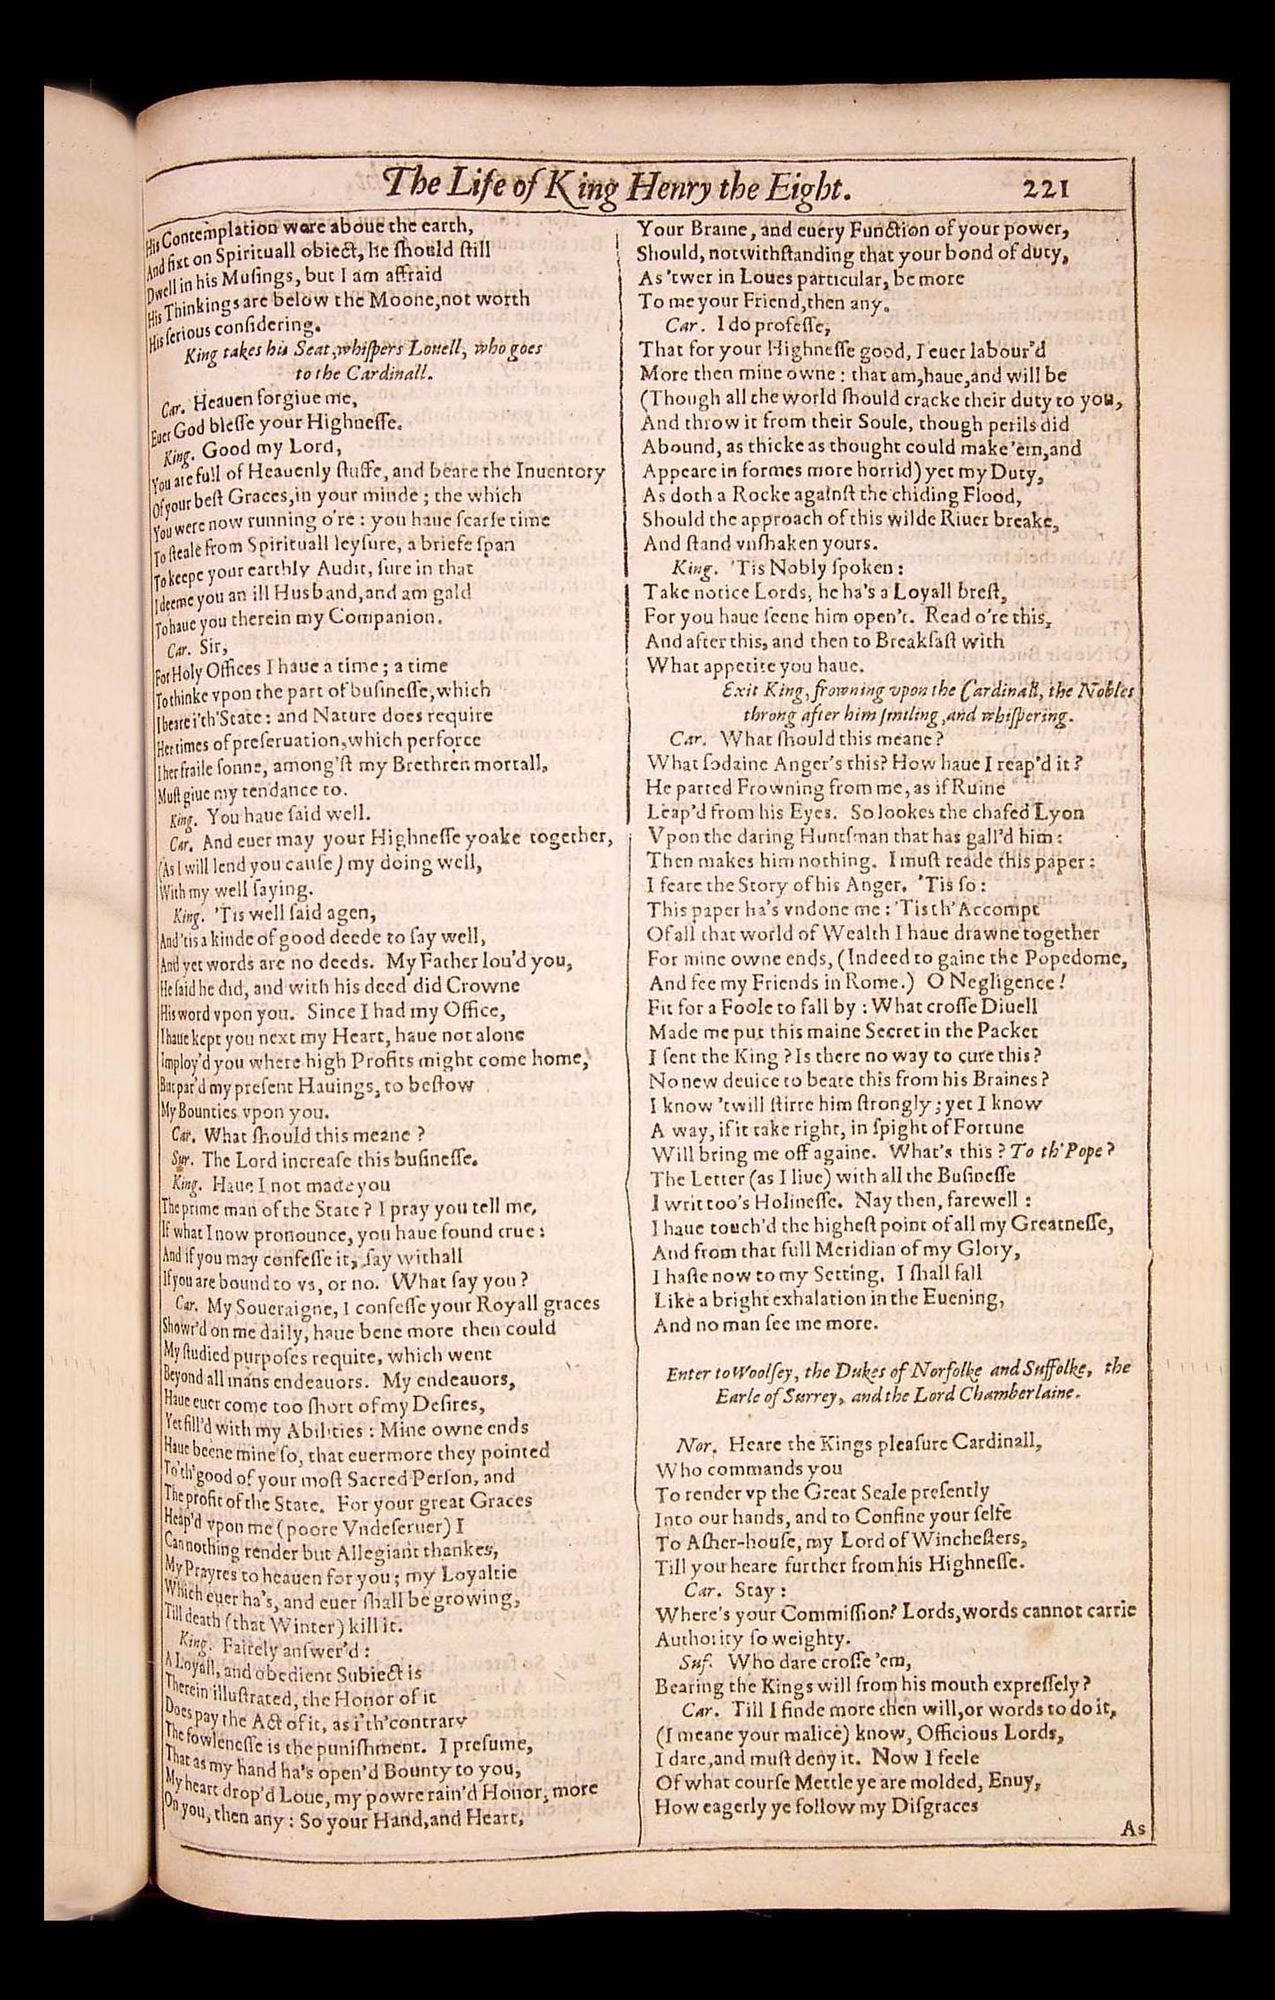 The Life of King Henry the Eight. 221
His Contemplation were aboue the earth,
And fixt on Spirituall obiect, he should still
Dwell in his Musings, but I am affraid
His Thinkings are below the Moone, not worth
His serious considering.
King takes his Seat, whispers Louell, who goes
to the Cardinall.
Car. Heauen forgiue me,
Euer God blesse your Highnesse.
King. Good my Lord,
You are full of Heauenly stuffe, and beare the Inuentory
Of your best Graces, in your minde; the which
You were now running o're: you haue scarse time
To steale from Spirituall leysure, a briefe span
To keepe your earthly Audit, sure in that
I deeme you an ill Husband, and am gald
To haue you therein my Companion.
Car. Sir,
For Holy Offices I haue a time; a time
To thinke vpon the part of businesse, which
I beare i'th'State: and Nature does require
Her times of preseruation, which perforce
I her fraile sonne, among'st my Brethren mortall,
Must giue my tendance to.
King. You haue said well.
Car. And euer may your Highnesse yoake together,
(As I will lend you cause) my doing well,
With my well saying.
King. 'Tis well said agen,
And 'tis a kinde of good deede to say well,
And yet words are no deeds. My Father lou'd you,
He said he did, and with his deed did Crowne
His word vpon you. Since I had my Office,
I haue kept you next my Heart, haue not alone
Imploy'd you where high Profits might come home,
But par'd my present Hauings, to bestow
My Bounties vpon you.
Car. What should this meane?
Sur. The Lord increase this businesse.
King. Haue I not made you
The prime man of the State? I pray you tell me,
If what I now pronounce, you haue found true:
And if you may confesse it, say withall
If you are bound to vs, or no. What say you?
Car. My Soueraigne, I confesse your Royall graces
Showr'd on me daily, haue bene more then could
My studied purposes requite, which went
Beyond all mans endeauors. My endeauors,
Haue euer come too short of my Desires,
Yet fill'd with my Abilities: Mine owne ends
Haue beene mine so, that euermore they pointed
To'th'good of your most Sacred Person, and
The profit of the State. For your great Graces
Heap'd vpon me (poore Vndeseruer) I
Can nothing render but Allegiant thankes,
My Prayres to heauen for you; my Loyaltie
Which euer ha's, and euer shall be growing,
Till death (that Winter) kill it.
King. Fairely answer'd:
A Loyall, and obedient Subiect is
Therein illustrated, the Honor of it
Does pay the Act of it, as i'th'contrary
The fowlenesse is the punishment. I presume,
That as my hand ha's open'd Bounty to you,
My heart drop'd Loue, my powre rain'd Honor, more
On you, then any: So your Hand, and Heart,
Your Braine, and euery Function of your power,
Should, notwithstanding that your bond of duty,
As 'twer in Loues particular, be more
To me your Friend, then any.
Car. I do professe,
That for your Highnesse good, I euer labour'd
More then mine owne: that am, haue, and will be
(Though all the world should cracke their duty to you,
And throw it from their Soule, though perils did
Abound, as thicke as thought could make 'em, and
Appeare in formes more horrid) yet my Duty,
As doth a Rocke against the chiding Flood,
Should the approach of this wilde Riuer breake,
And stand vnshaken yours.
King. 'Tis Nobly spoken:
Take notice Lords, he ha's a Loyall brest,
For you haue seene him open't. Read o're this,
And after this, and then to Breakfast with
What appetite you haue.
Exit King, frowning vpon the Cardinall, the Nobles
throng after him smiling, and whispering.
Car. What should this meane?
What sodaine Anger's this? How haue I reap'd it?
He parted Frowning from me, as if Ruine
Leap'd from his Eyes. So lookes the chafed Lyon
Vpon the daring Huntsman that has gall'd him:
Then makes him nothing. I must reade this paper:
I feare the Story of his Anger. 'Tis so:
This paper ha's vndone me: 'Tis th'Accompt
Of all that world of Wealth I haue drawne together
For mine owne ends, (Indeed to gaine the Popedome,
And fee my Friends in Rome.) O Negligence!
Fit for a Foole to fall by: What crosse Diuell
Made me put this maine Secret in the Packet
I sent the King? Is there no way to cure this?
No new deuice to beate this from his Braines?
I know 'twill stirre him strongly; yet I know
A way, if it take right, in spight of Fortune
Will bring me off againe. What's this? To th'Pope?
The Letter (as I liue) with all the Businesse
I writ too's Holinesse. Nay then, farewell:
I haue touch'd the highest point of all my Greatnesse,
And from that full Meridian of my Glory,
I haste now to my Setting. I shall fall
Like a bright exhalation in the Euening,
And no man see me more.
Enter to Woolsey, the Dukes of Norfolke and Suffolke, the
Earle of Surrey, and the Lord Chamberlaine.
Nor. Heare the Kings pleasure Cardinall,
Who commands you
To render vp the Great Seale presently
Into our hands, and to Confine your selfe
To Asher-house, my Lord of Winchesters,
Till you heare further from his Highnesse.
Car. Stay:
Where's your Commission? Lords, words cannot carrie
Authority so weighty.
Suf. Who dare crosse 'em,
Bearing the Kings will from his mouth expressely?
Car. Till I finde more then will, or words to do it,
(I meane your malice) know, Officious Lords,
I dare, and must deny it. Now I feele
Of what course Mettle ye are molded, Enuy,
How eagerly ye follow my Disgraces
As